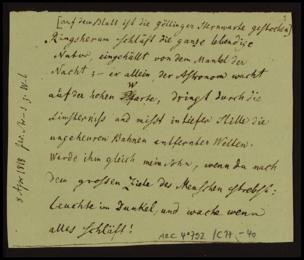 [auf dem Blatt ist die Göttinger Sternwarte gestochen]
Ringsherum schläft die ganze lebendige
Natur, eingehüllt von dem Mantel der
Nacht; – er allein der Astronom wacht
auf der hohen Warte, dringt durch die
Finsterniss und misst in tiefer Stille die
ungeheuren Bahnen entfernter Welten.
Werde ihm gleich mein Sohn, wenn du nach
dem grossen Ziele des Menschen strebst:
leuchte im Dunkel, und wache wenn
alles schläft!
8 Apr. 1818